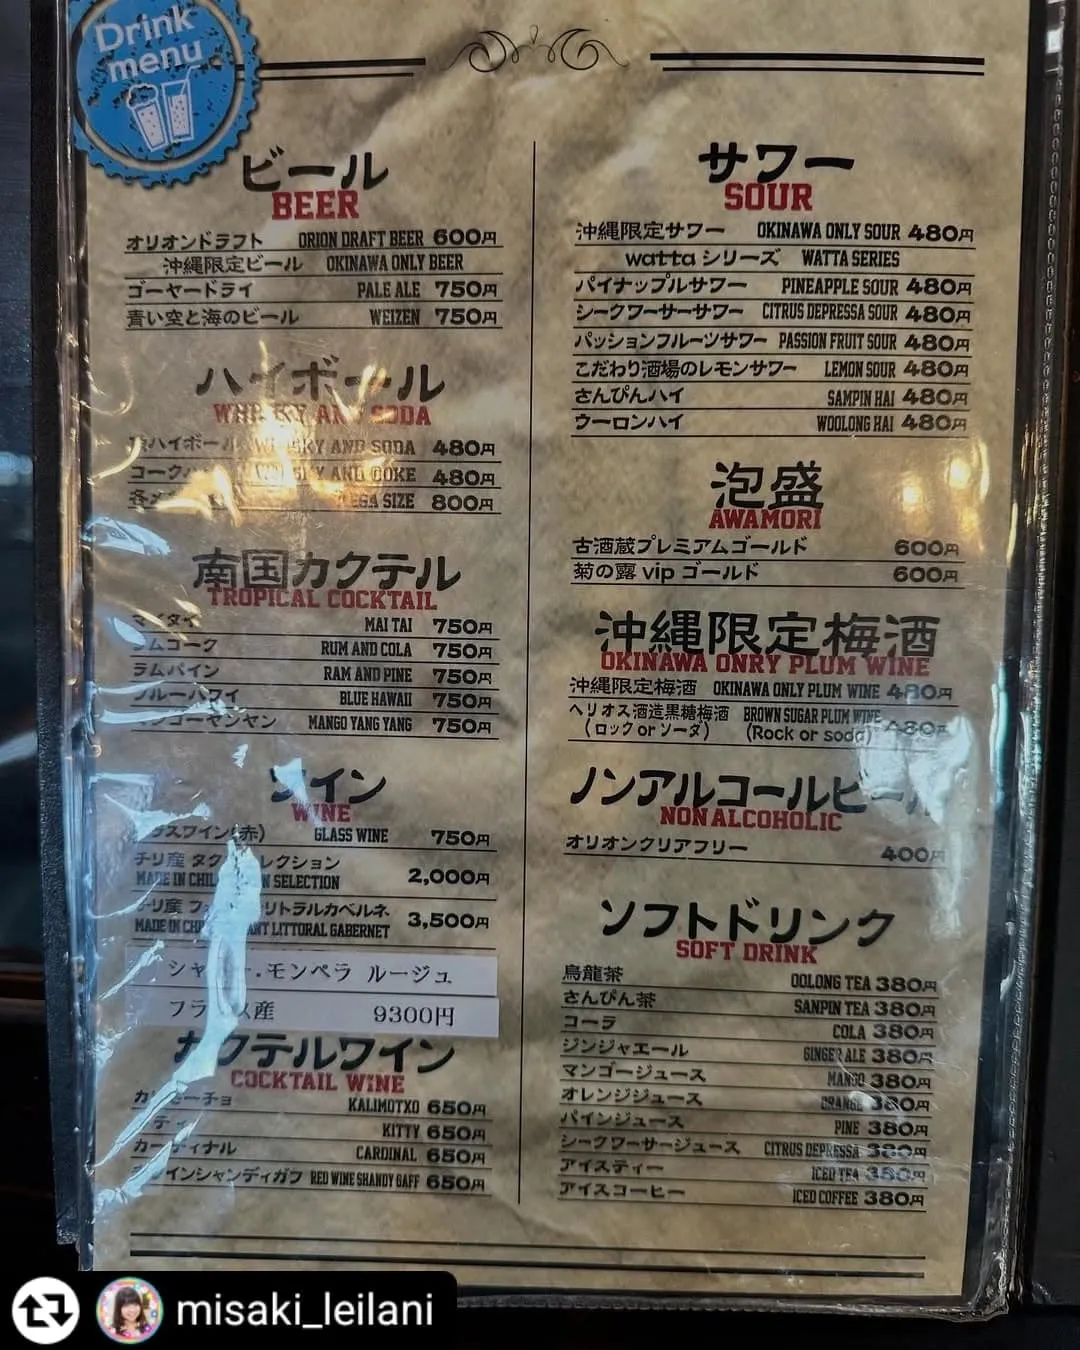 Drink
menu
ビール
BEER
オリオンドラフト ORION DRAFT BEER 600円
沖縄限定ビール OKINAWA ONLY BEER
ゴーヤードライ PALE ALE 750円
青い空と海のビール WEIZEN 750円
ハイボール
WHISKY AND SODA
ハイボール WHISKY AND SODA 480円
コーク WHISKY AND COKE 480円
MEGA SIZE 800円
南国カクテル
TROPICAL COCKTAIL
マイタイ MAI TAI 750円
ラムコーク RUM AND COLA 750円
ラムパイン RAM AND PINE 750円
ブルーハワイ BLUE HAWAII 750円
マンゴーヤンヤン MANGO YANG YANG 750円
ワイン
WINE
グラスワイン(赤) GLASS WINE 750円
チリ産 レクション
MADE IN CHILE SELECTION 2,000円
チリ産 リトラルカベルネ
MADE IN CHILE LITTORAL GABERNET 3,500円
モンペラ ルージュ
フランス産 9300円
カクテルワイン
COCKTAIL WINE
カリモーチョ KALIMOTXO 650円
KITTY 650円
カーディナル CARDINAL 650円
ワインシャンディガフ RED WINE SHANDY GAFF 650円
サワー
SOUR
沖縄限定サワー OKINAWA ONLY SOUR 480円
wattaシリーズ WATTA SERIES
パイナップルサワー PINEAPPLE SOUR 480円
シークワーサーサワー CITRUS DEPRESSA SOUR 480円
パッションフルーツサワー PASSION FRUIT SOUR 480円
こだわり酒場のレモンサワー LEMON SOUR 480円
さんぴんハイ SAMPIN HAI 480円
ウーロンハイ WOOLONG HAI 480円
泡盛
AWAMORI
古酒蔵プレミアムゴールド 600円
菊の露 vip ゴールド 600円
沖縄限定梅酒
OKINAWA ONRY PLUM WINE
沖縄限定梅酒 OKINAWA ONLY PLUM WINE 480円
ヘリオス酒造黒糖梅酒 BROWN SUGAR PLUM WINE 480円
(ロック or ソーダ) (Rock or soda)
ノンアルコールビール
NON ALCOHOLIC
オリオンクリアフリー 400円
ソフトドリンク
SOFT DRINK
烏龍茶 OOLONG TEA 380円
さんぴん茶 SANPIN TEA 380円
コーラ COLA 380円
ジンジャエール GINGER ALE 380円
マンゴージュース MANGO 380円
オレンジジュース ORANGE 380円
パインジュース PINE 380円
シークワーサージュース CITRUS DEPRESSA 380円
アイスティー ICED TEA 380円
アイスコーヒー ICED COFFEE 380円
misaki_leilani